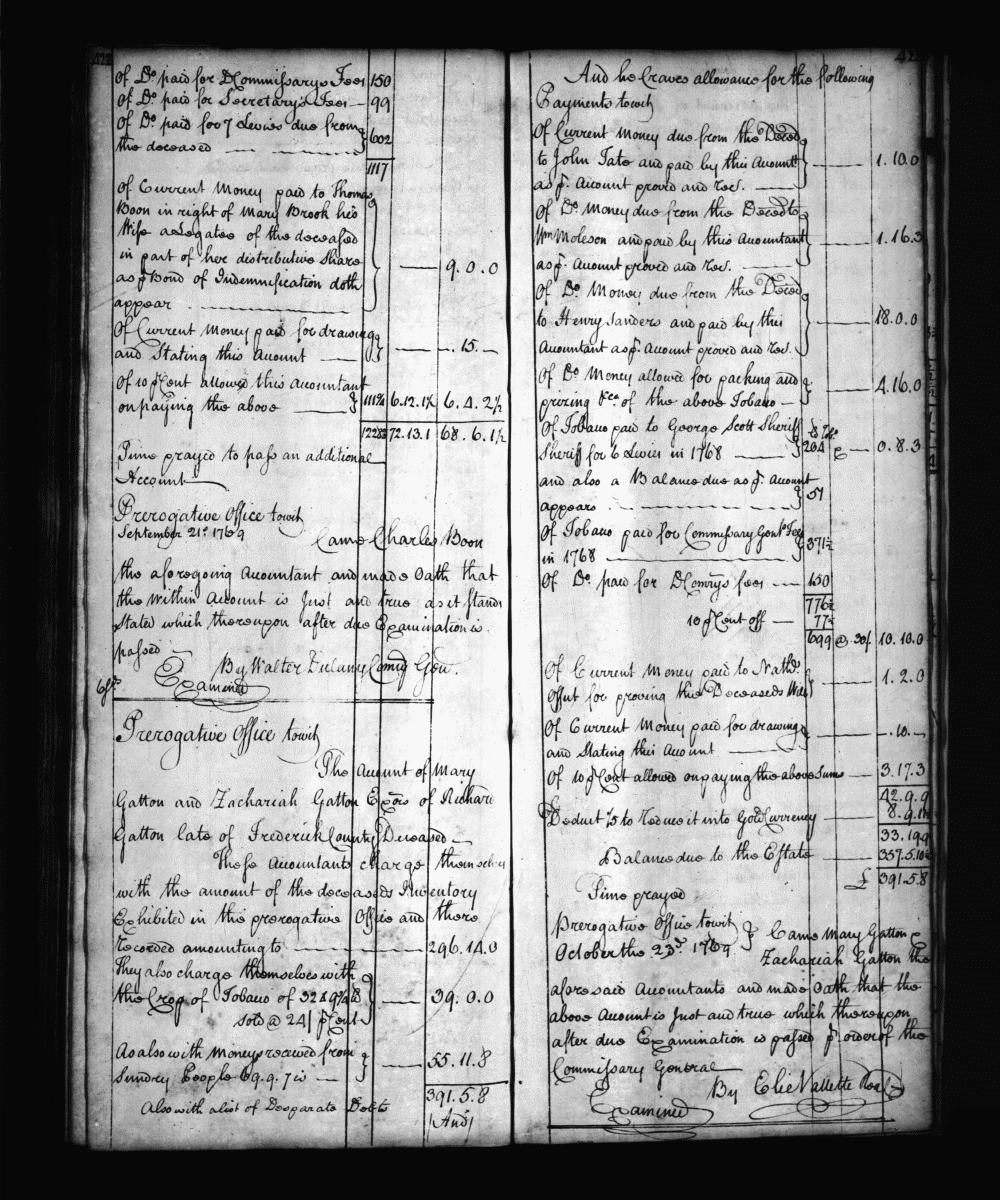 422
Of Do. paid for DCommissarys Fees 150
Of Do. paid for Secretary's Fees — 99
Of Do. paid for 7 Levies due from
the deceased — — 602
1117
Of Current Money paid to Thomas
Boon in right of Mary Brook his
Wife a Legatee of the deceased
in part of her distributive Share
as p Bond of Indemnification doth
appear — 9.0.0
Of Current Money paid for drawing
and Stating this Account — — .15. —
Of 10 p Cent allowed this Accountant
on paying the above — 111¾ 6.12.1½ 6.4.2½
1228¾ 72.13.1 68.6.1½
Time prayed to pass an additional
Account
Prerogative Office towit
September 21st 1769
Came Charles Boon
the aforegoing Accountant and made Oath that
the Within Account is Just and true as it Stands
Stated which thereupon after due Examination is
passed —
By Walter Dulany Comry Genl.
Examined
Prerogative Office towit
The Account of Mary
Gatton and Zachariah Gatton Exors of Richard
Gatton late of Frederick County Deceased —
These Accountants charge themselves
with the amount of the deceaseds Inventory
Exhibited in the prerogative Office and there
Recorded amounting to — 296.14.0
They also charge themselves with
the Crop of Tobacco of
sold @ 24/ p Cent — 39.0.0
As also with Moneys received from
Sundry People 69.9.7 is — 55.11.8
391.5.8
Also with a list of Desparate Debts
And
And he Craves allowance for the following
Payments towit
Of Current Money due from the Deced
to John Tate and paid by this Accountt
as p. Account proved and Rec. — 1.10.0
Of Do. Money due from the Deced to
Wm Moleson and paid by this Accountant
as p. Account proved and Rec. — 1.16.3
Of Do. Money due from the Deced
to Henry Sanders and paid by this
Accountant as p. Account proved and Rec. 18.0.0
Of Do. Money allowed for packing and
prizing &ca. of the above Tobaco — 4.16.0
Of Tobaco paid to George Scott Sheriff
Sheriff for 6 Levies in 1768 — 204 — 0.8.3
and also a Balance due as p. Account
appears — 51
Of Tobaco paid for Commissary Genls Fees
in 1768 — 371½
Of Do. paid for DComrys fees — 150
776½
10 p Cent off — 77½
699 @ 30/ 10.10.0
Of Current Money paid to Nathl.
Offut for proving the Deceaseds Will — 1.2.0
Of Current Money paid for drawing
and Stating this Account — .10. —
Of 10 p Cent allowed on paying the above Sums — 3.17.3
42.9.9
Deduct 1/5 to Reduce it into Gold Currency — 8.9.11½
33.19.9
Balance due to the Estate — 357.5.10½
£ 391.5.8
Time prayed
Prerogative Office towit
October the 23d. 1769
Came Mary Gatton &
Zachariah Gatton the
aforesaid Accountants and made Oath that the
above Account is Just and true which thereupon
after due Examination is passed p order of the
Commissary General
By Elie Vallette Regr
Examined